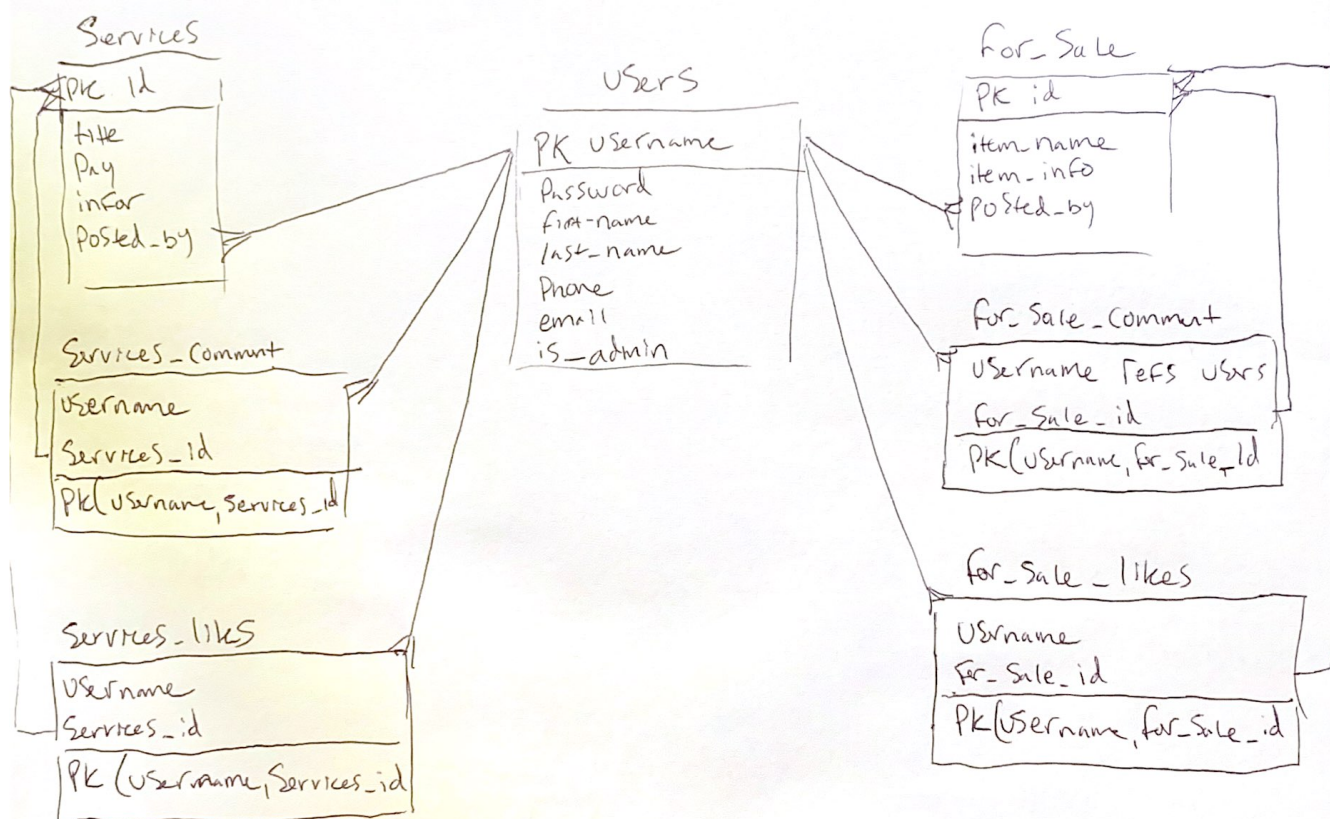 Services
PK Id
title
Pay
infor
Posted_by
Services_Comment
Username
Services_Id
PK(Username,Services_id
Services_likes
Username
Services_id
PK(Username,Services_id
Users
PK Username
Password
first-name
last_name
Phone
email
is_admin
For_Sale
PK id
item_name
item_info
Posted_by
For_Sale_Comment
Username refs Users
For_Sale_id
PK(Username,For_Sale_Id
For_Sale_likes
Username
For_Sale_id
PK(Username,For_Sale_id